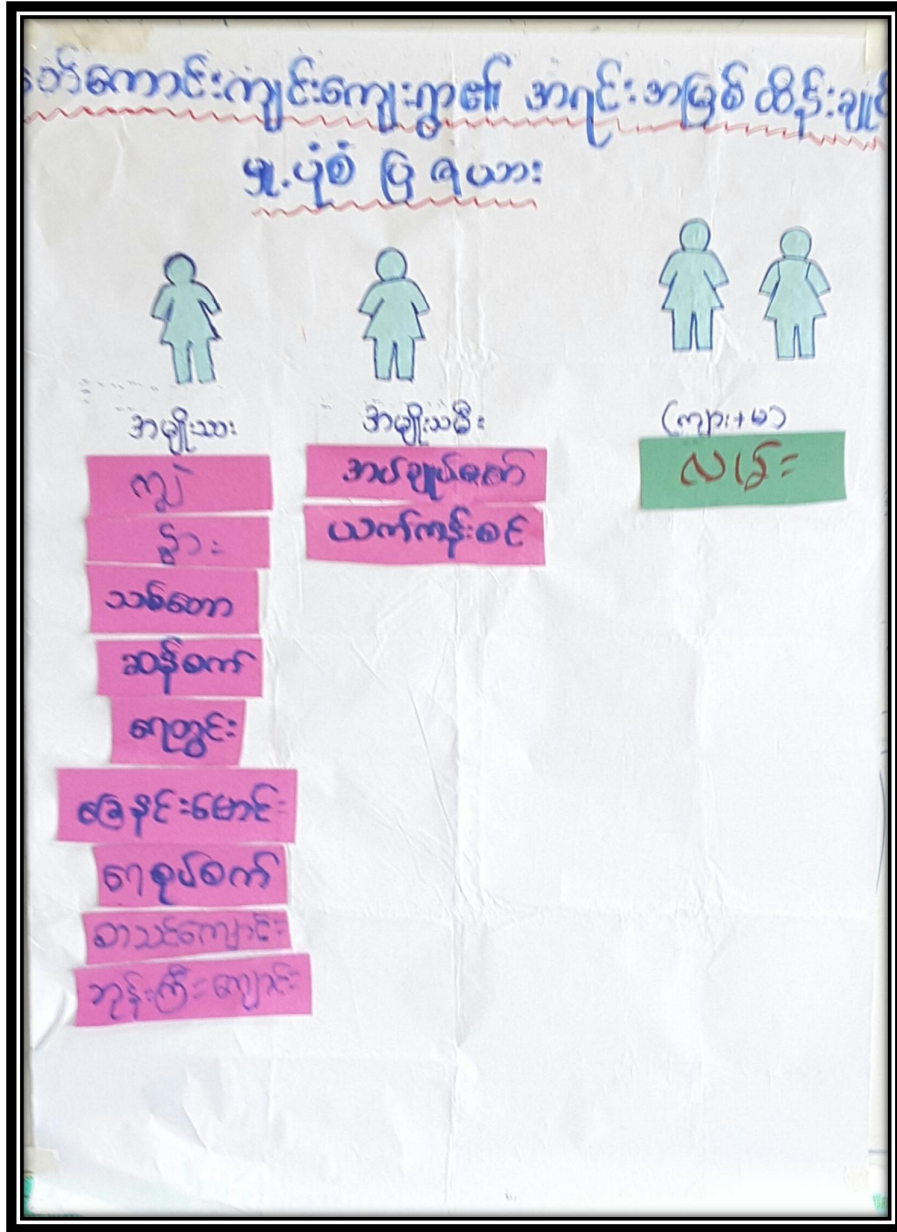 နတ်ကောင်းကျင်းကျေးရွာ၏ အရင်းအမြစ် ထိန်းချုပ်
မှု ပုံစံ ပြ ဇယား
အမျိုးသား
ကျွဲ
နွား
သစ်တော
ဆန်စက်
ရေတွင်း
ခြေနင်းမောင်း
ရေစုပ်စက်
စာသင်ကျောင်း
ဘုန်းကြီးကျောင်း
အမျိုးသမီး
အပ်ချုပ်စက်
ယက်ကန်းစင်
(ကျား+မ)
လမ်း